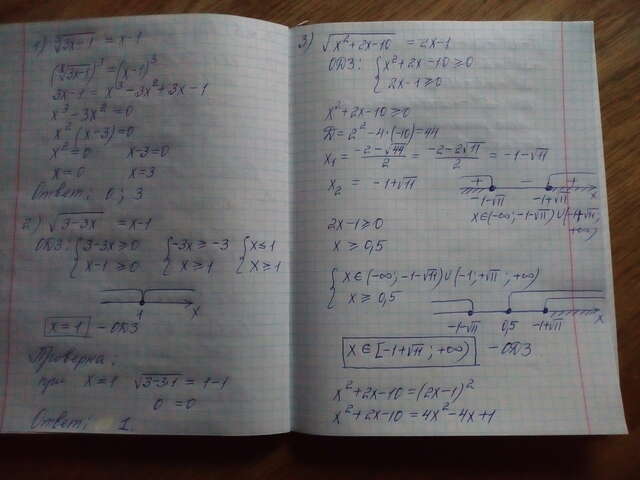 1) ∛(3x-1) = x-1
(∛(3x-1))³ = (x-1)³
3x-1 = x³-3x²+3x-1
x³-3x²=0
x²(x-3)=0
x²=0 x-3=0
x=0 x=3
Ответ: 0; 3
2) √(3-3x) = x-1
ОДЗ: { 3-3x≥0 { -3x ≥ -3 { x≤1
x-1≥0 x≥1 x≥1
1 x
x=1 - ОДЗ
Проверка:
при x=1 √(3-3·1) = 1-1
0 = 0
Ответ: 1.
3) √(x²+2x-10) = 2x-1
ОДЗ: { x²+2x-10≥0
2x-1≥0
x²+2x-10≥0
D=2²-4·(-10)=44
x₁ = (-2-√44)/2 = (-2-2√11)/2 = -1-√11
x₂ = -1+√11
+ - +
-1-√11 -1+√11 x
x∈(-∞; -1-√11)∪(-1+√11; +∞)
2x-1≥0
x≥0,5
{ x∈(-∞; -1-√11)∪(-1; +√11; +∞)
x≥0,5
-1-√11 0,5 -1+√11 x
x∈[-1+√11; +∞) - ОДЗ
x²+2x-10=(2x-1)²
x²+2x-10=4x²-4x+1